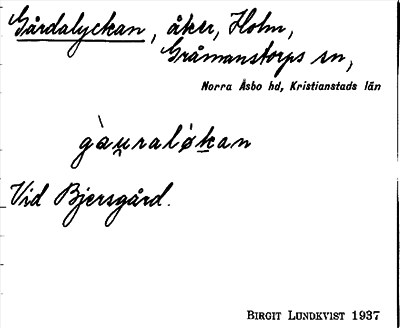 Gårdalyckan, åker, Holm,
Gråmanstorps sn,
Norra Åsbo hd, Kristianstads län
gàu̯ralǿkan
Vid Bjersgård.
BIRGIT LUNDKVIST 1937